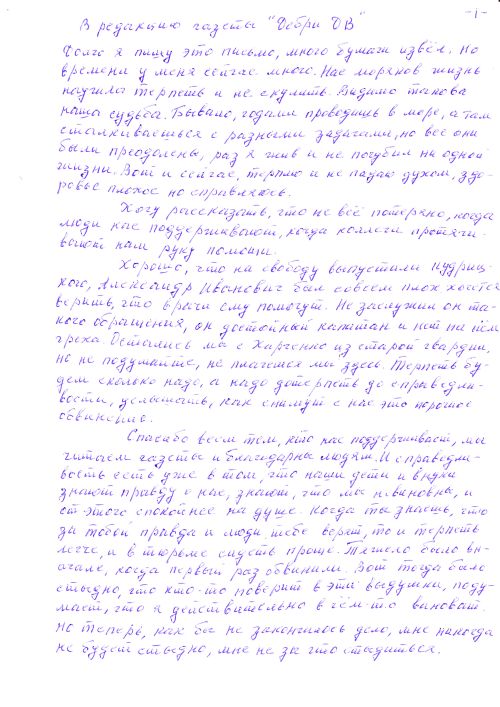 -1-
В редакцию газеты "Дебри ДВ"
Долго я пишу это письмо, много бумаги извёл. Но
времени у меня сейчас много. Нас моряков жизнь
научила терпеть и не скулить. Видимо такова
наша судьба. Бывало, годами проводишь в море, а там
сталкиваешься с разными задачами, но все они
были преодолены, раз я жив и не погубил ни одной
жизни. Вот и сейчас, терплю и не падаю духом, здо-
ровье плохое но справляюсь.
Хочу рассказать, что не всё потеряно, когда
люди нас поддерживают, когда коллеги протяги-
вают нам руку помощи.
Хорошо, что на свободу выпустили Кудриц-
кого, Александр Иванович был совсем плох хочется
верить, что врачи ему помогут. Не заслужил он та-
кого обращения, он достойный капитан и нет на нём
греха. Остались мы с Харченко из старой гвардии,
но не подумайте, не плачемся мы здесь. Терпеть бу-
дем сколько надо, а надо дотерпеть до справедли-
вости, услышать, как снимут с нас это порочное
обвинение.
Спасибо всем тем, кто нас поддерживает, мы
читаем газеты и благодарны людям. И справедли-
вость есть уже в том, что наши дети и внуки
знают правду о нас, знают, что мы невиновны, и
от этого спокойнее на душе. Когда ты знаешь, что
за тобой правда и люди тебе верят, то и терпеть
легче, и в тюрьме сидеть проще. Тяжело было вн-
ачале, когда первый раз обвинили. Вот тогда было
стыдно, что кто-то поверит в эти выдумки, поду-
мает, что я действительно в чём-то виноват.
Но теперь, как бы не закончилось дело, мне никогда
не будет стыдно, мне не за что стыдиться.